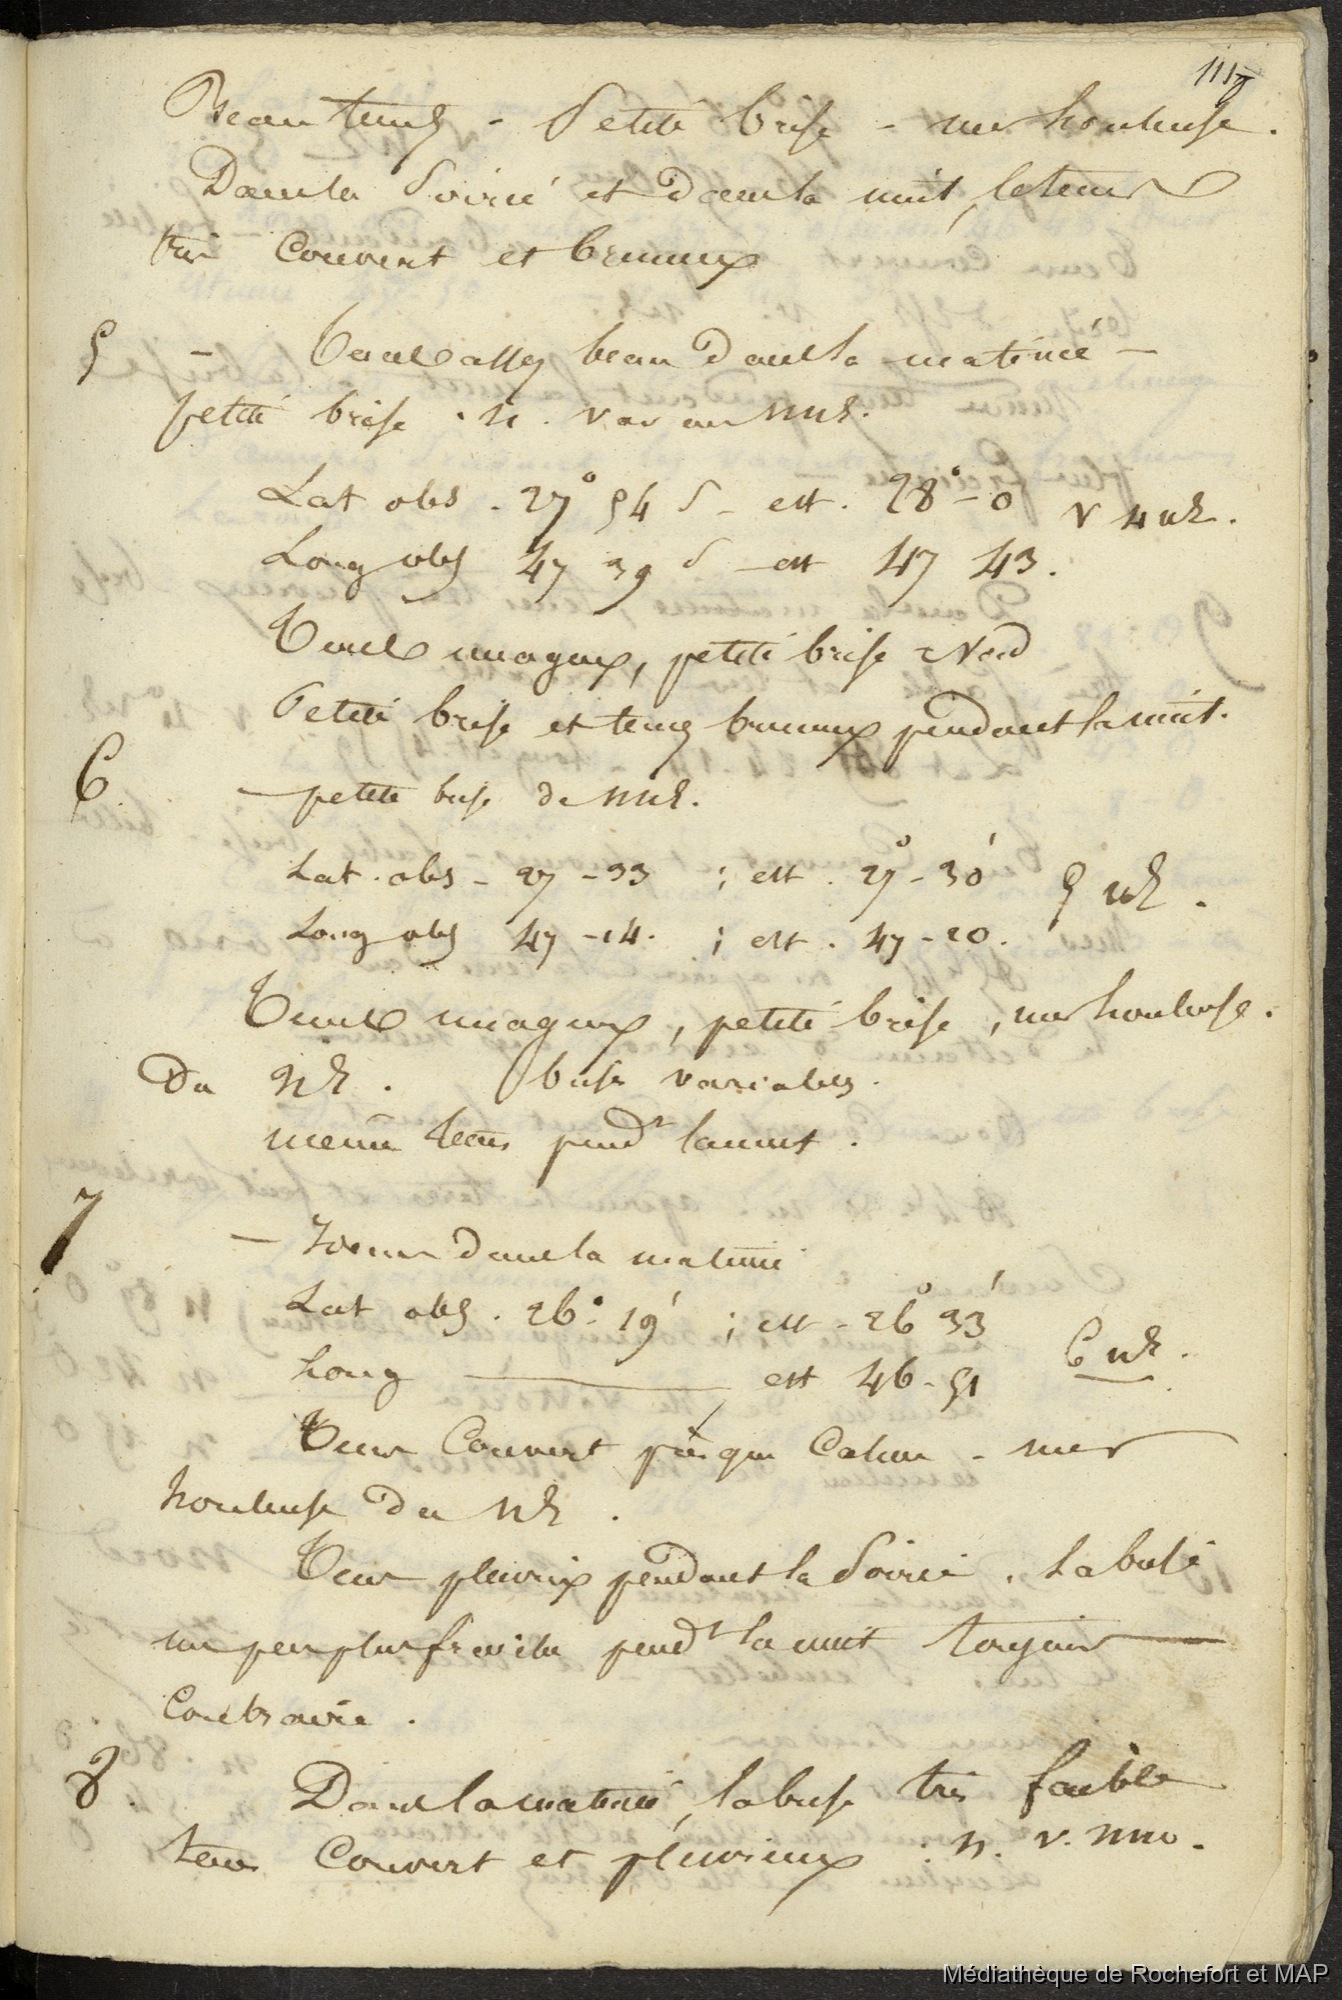 111
Beau tems - Petite brise - mer houleuse.
Dans la Soirée et dans la nuit, le tems
très Couvert et brumeux
5 - Tems assez beau dans la matinée -
petite brise . N . var au NNE.
Lat obs . 27° 54 S - est . 28° - 0 V 4 NE.
Long obs 47 39 S - est 47 43.
Tems nuageux, petite brise Nord
Petite brise et tems brumeux pendant la nuit.
6 - petite brise de NNE.
Lat . obs - 27 - 33 ; est . 27° - 30' 5 NE .
Long obs 47 - 14 . ; est . 47 - 20 .
Tems nuageux, petite brise, mer houleuse.
Du NE . brise variables .
même tems pend.t la nuit .
7 - Idem dans la matinée
Lat obs . 26° 19' ; est - 26° 33'
Long ——— est 46 - 51 6 NE .
Tems Couvert presque Calme - mer
houleuse du NE .
Tems pluvieux pendant la Soirée . La brise
un peu plus fraiche pend.t la nuit toujours
Contraire .
8 . Dans la matinée, la brise très faible
tems Couvert et pluvieux : N . V . NNO .
Médiathèque de Rochefort et MAP